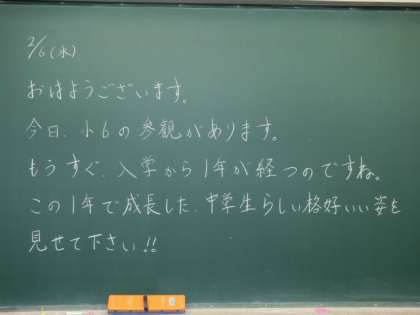 2/6(水)
おはようございます。
今日、小6の参観があります。
もうすぐ、入学から1年が経つのですね。
この1年で成長した、中学生らしい格好いい姿を
見せて下さい!!